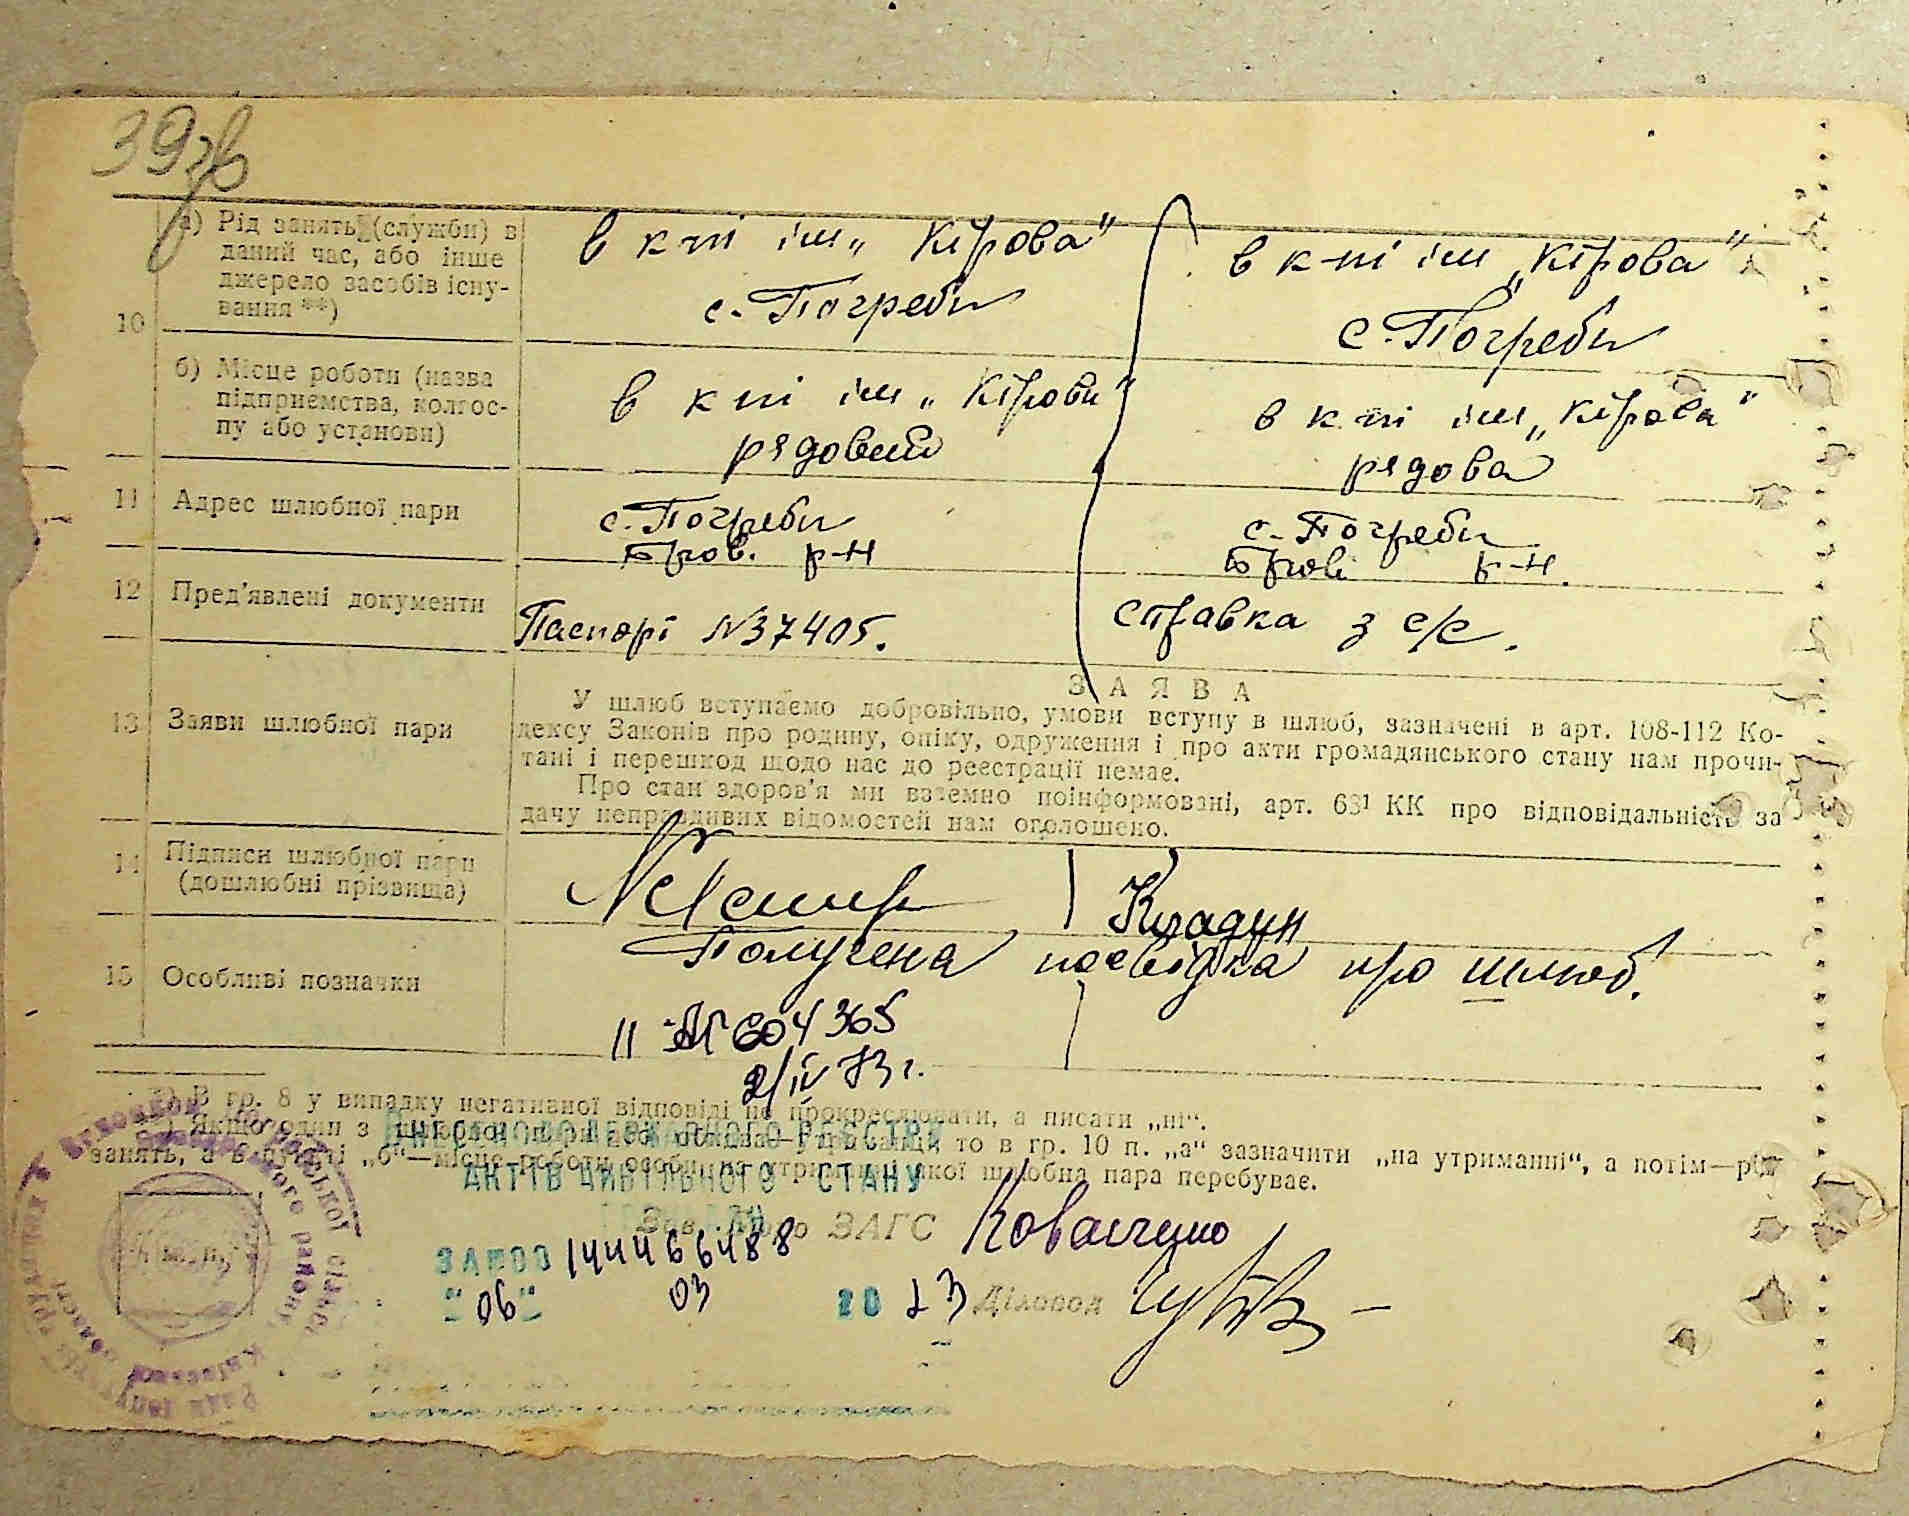 39зв
а) Рід занять (службы) в
даний час, або інше
джерело засобів існу-
вання **)
10
в к-пі ім „Кірова"
с. Погреби
в к-пі ім „Кірова"
с. Погреби
б) Місце роботи (назва
підприємства, колгос-
пу або установи)
в к-пі ім „Кірови"
рядовий
в к-пі ім „Кірова"
рядова
11 Адрес шлюбної пари
с. Погреби
Бров. р-н
с. Погреби
Бров. р-н.
12 Пред'явлені документи
Паспорт №37405.
справка з с/с.
13 Заяви шлюбної пари
ЗАЯВА
У шлюб вступаємо добровільно, умови вступу в шлюб, зазначені в арт. 108-112 Ко-
дексу Законів про родину, опіку, одруження і про акти громадянського стану нам прочи-
тані і перешкод щодо нас до реєстрації немає.
Про стан здоров'я ми взаємно поінформовані, арт. 63¹ КК про відповідальність за
дачу неправдивих відомостей нам оголошено.
14 Підписи шлюбної пари
(дошлюбні прізвища)
Кладун
15 Особливі позначки
Получена посвідка про шлюб.
604365
2/IV 73 г.
*) В гр. 8 у випадку негативної відповіді не прокреслювати, а писати „ні“.
то в гр. 10 п. „а“ зазначити „на утриманні“, а потім—рід
занять, а в пункті „б“—місце роботи особи, на утриманні якої шлюбна пара перебуває.
ДЕРЖАВНОГО РЕЄСТРУ
АКТІВ ЦИВІЛЬНОГО СТАНУ
Зав. бюро ЗАГС
"06" 03 20 23
Діловод